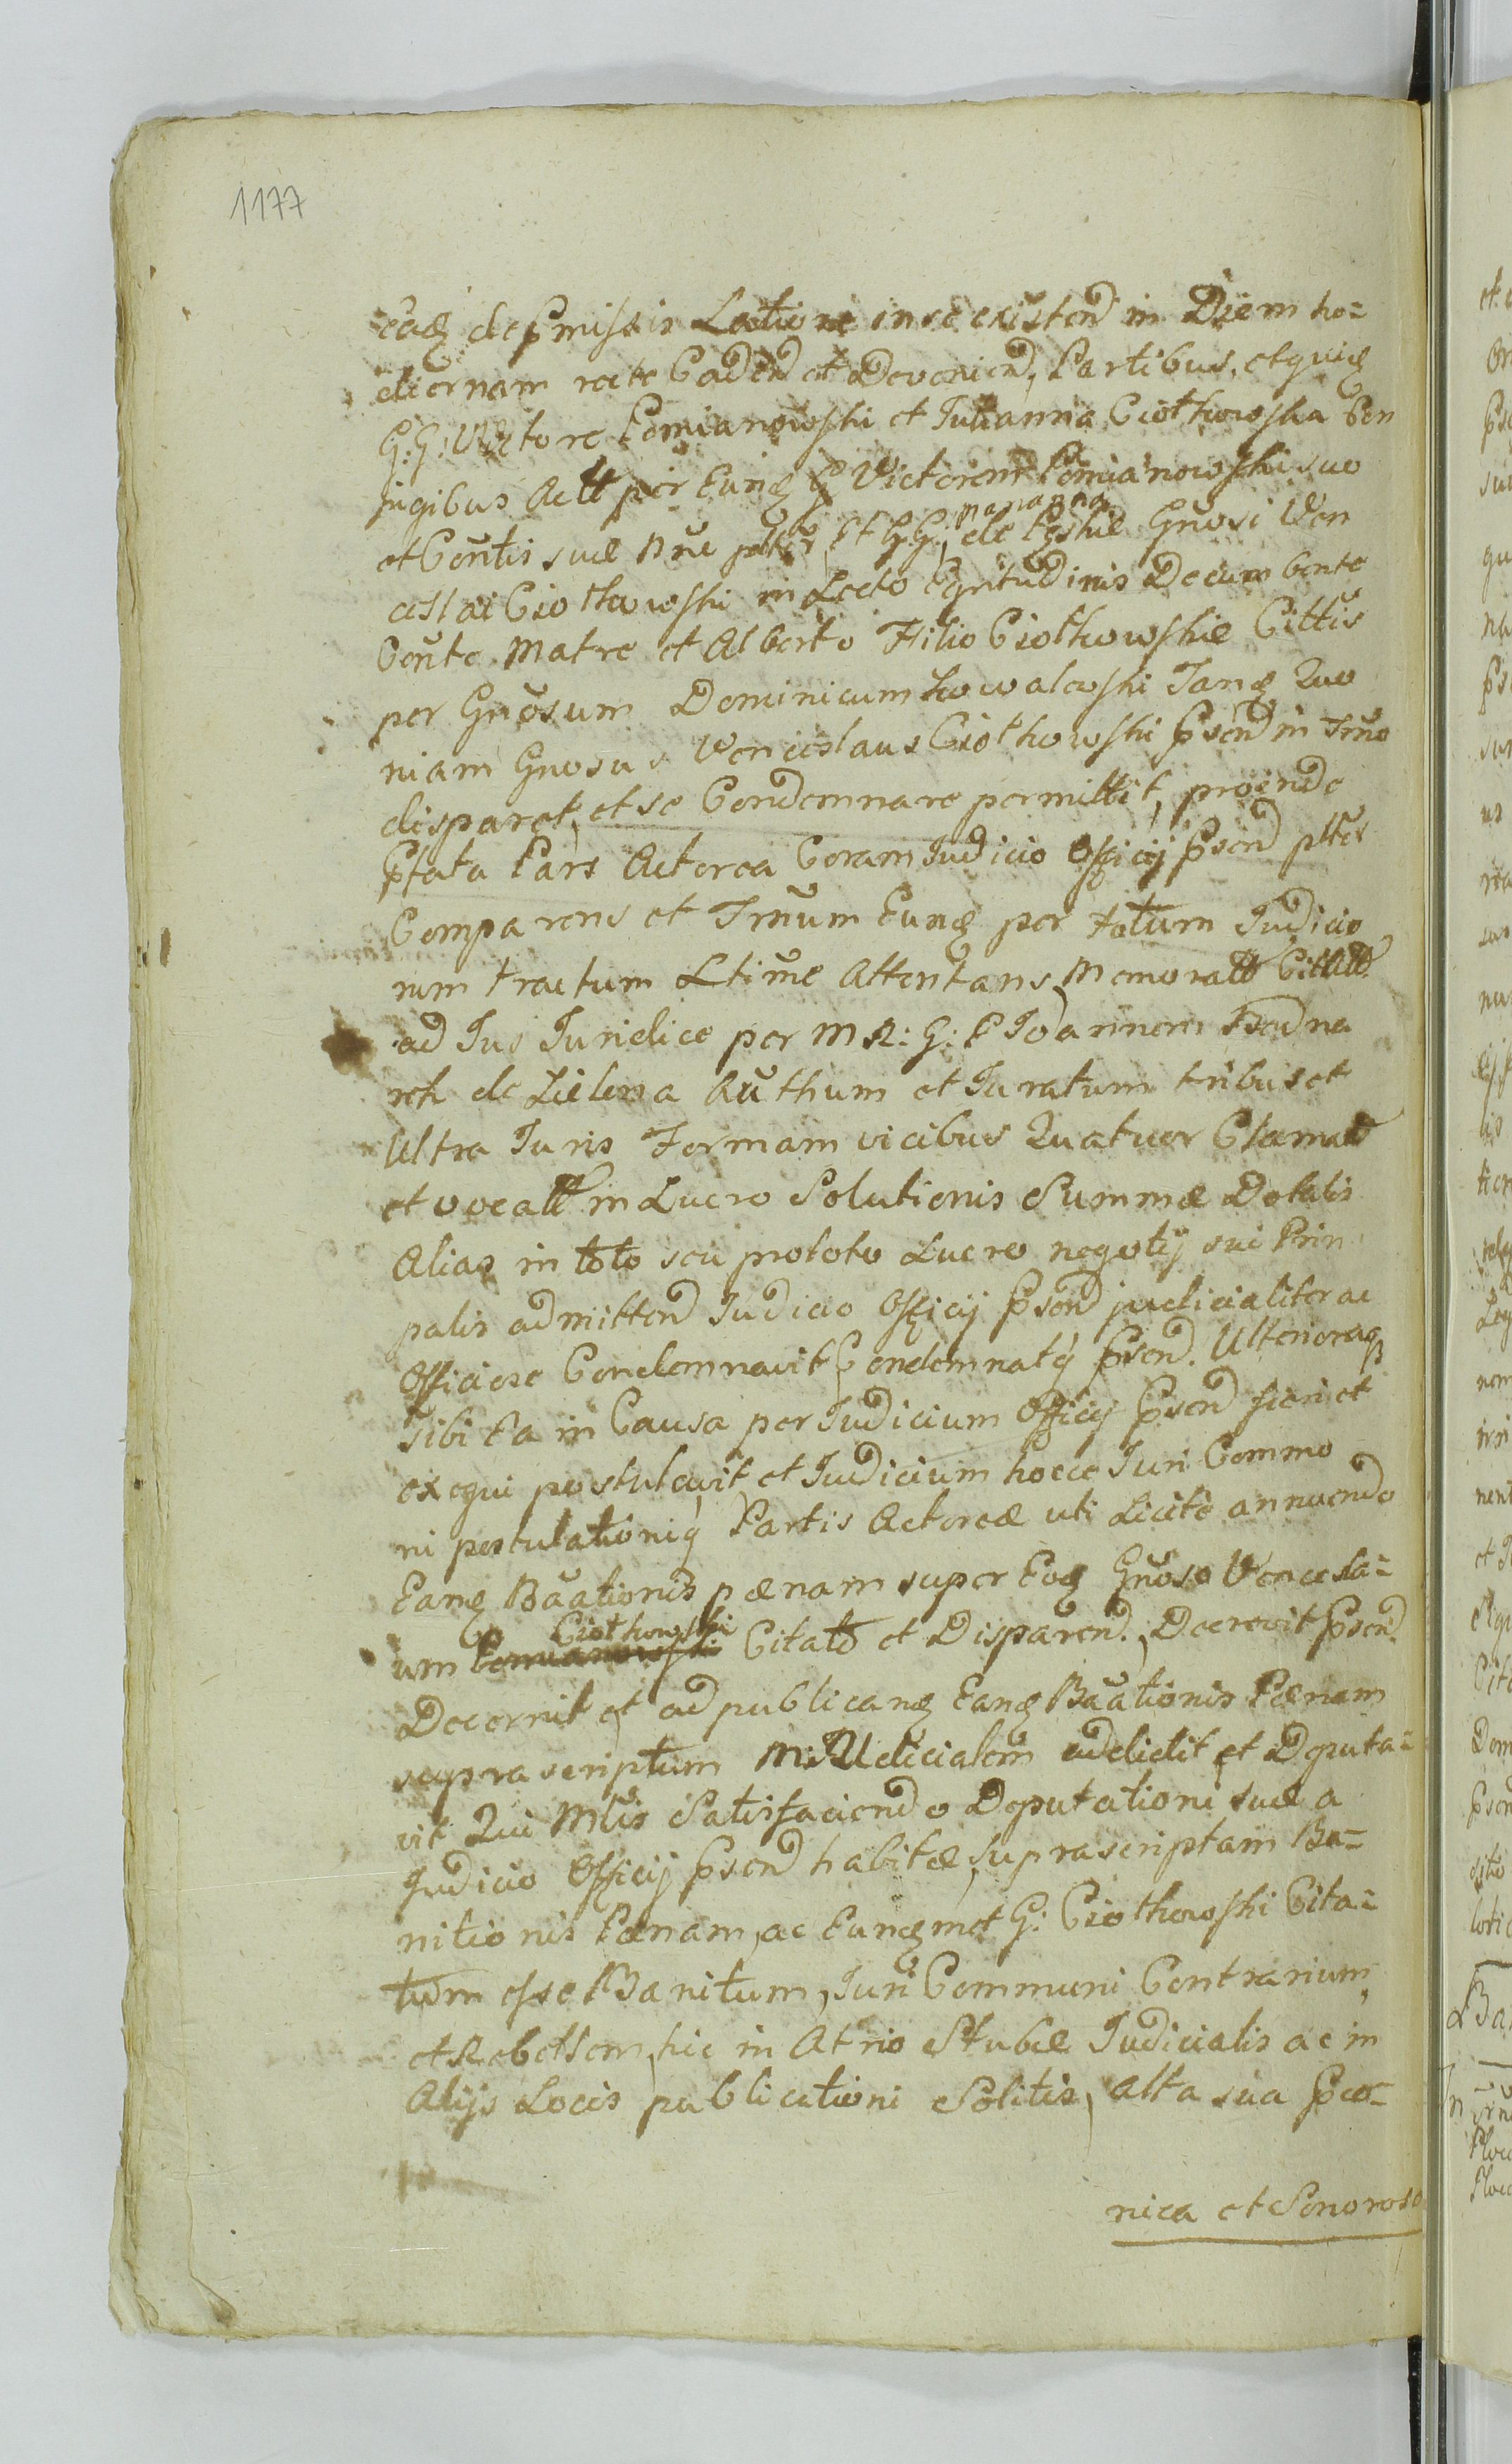 1177
eaq de Pmissis Latione in se existend in Diem ho-
diernam recte Cadend et Devenient, Partibus, etquiq
G: G: Victore Pomianowski et Julianna Ciołkowska Con
jugibus Actt per Eunq G Victorem Pomianowski suo
et Contis suæ Nne ptter, Et G.G:, Marianna de Gnosi Ven
ceslai Ciołkowski in Lecto Egritudinis Decumbente
Cente Matre et Alberto Filio Ciołkowskie Cittis
per Gnosum Dominicum Kowalewski Tanq Quo
niam Gnosus Venceslaus Ciołkowski Psend in Trno
disparet, et se Condemnare permittit, proinde
Ptata Pars Actorea Coram Judicio Officij Psend ptter
Comparens et Trnum Eunq per totum Judicio
rum tractum Ltime Attentans, Memoratt Cittatt
ad Jus Juridice per M R: G: P Joannem Bedna
rch de Lielena Authum et Juratum tribus et
Ultra Juris Formam vicibus Quatuor Clamatt
et vocatt in Lucro Solutionis Summæ Dotalis
Alias in toto seu prototo Lucro negotij sui Prin
palis admittend Judicio Officij Psend judicialiter ac
Officiose Condemnavit Condemnatq Psend. Ulterioraq
Sibi ta in Causa per Judicium Officij Psend fieri et
exequi postulavit, et Judicium hocce Juri Commo
ni postulationiq Partis Actoreæ uti Licite annuendo
Eamq Baationis pænam super Eoq Gnoso Vencesla-
um Pomianowski Ciołkowski Citato et Disparend., Decrevit Psend
Decernit et ad publicanq Eanq Baationis Pænam
suprascriptum M: JUdicialem addidit et Deputa-
vit Qui Mlis Satisfaciendo Deputationi suæ a
Judicio Officij Psend habitæ, suprascriptam Ba-
nitionis Pænam, ac Eunqmet G: Ciołkowski Cita-
tum esse Banitum, Juri Communi Contrarium,
et Rebellem, hic in Atrio Stubæ Judicialis ac in
Alijs Locis publicationi Solitis, Alta sua Pco-
nica et Sonorosa